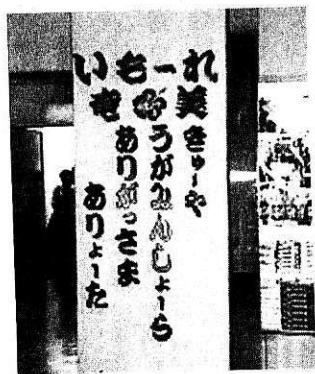 いもーれ
奄美
きゅーや
うがみんしょーら
ありがっさま
ありょーた